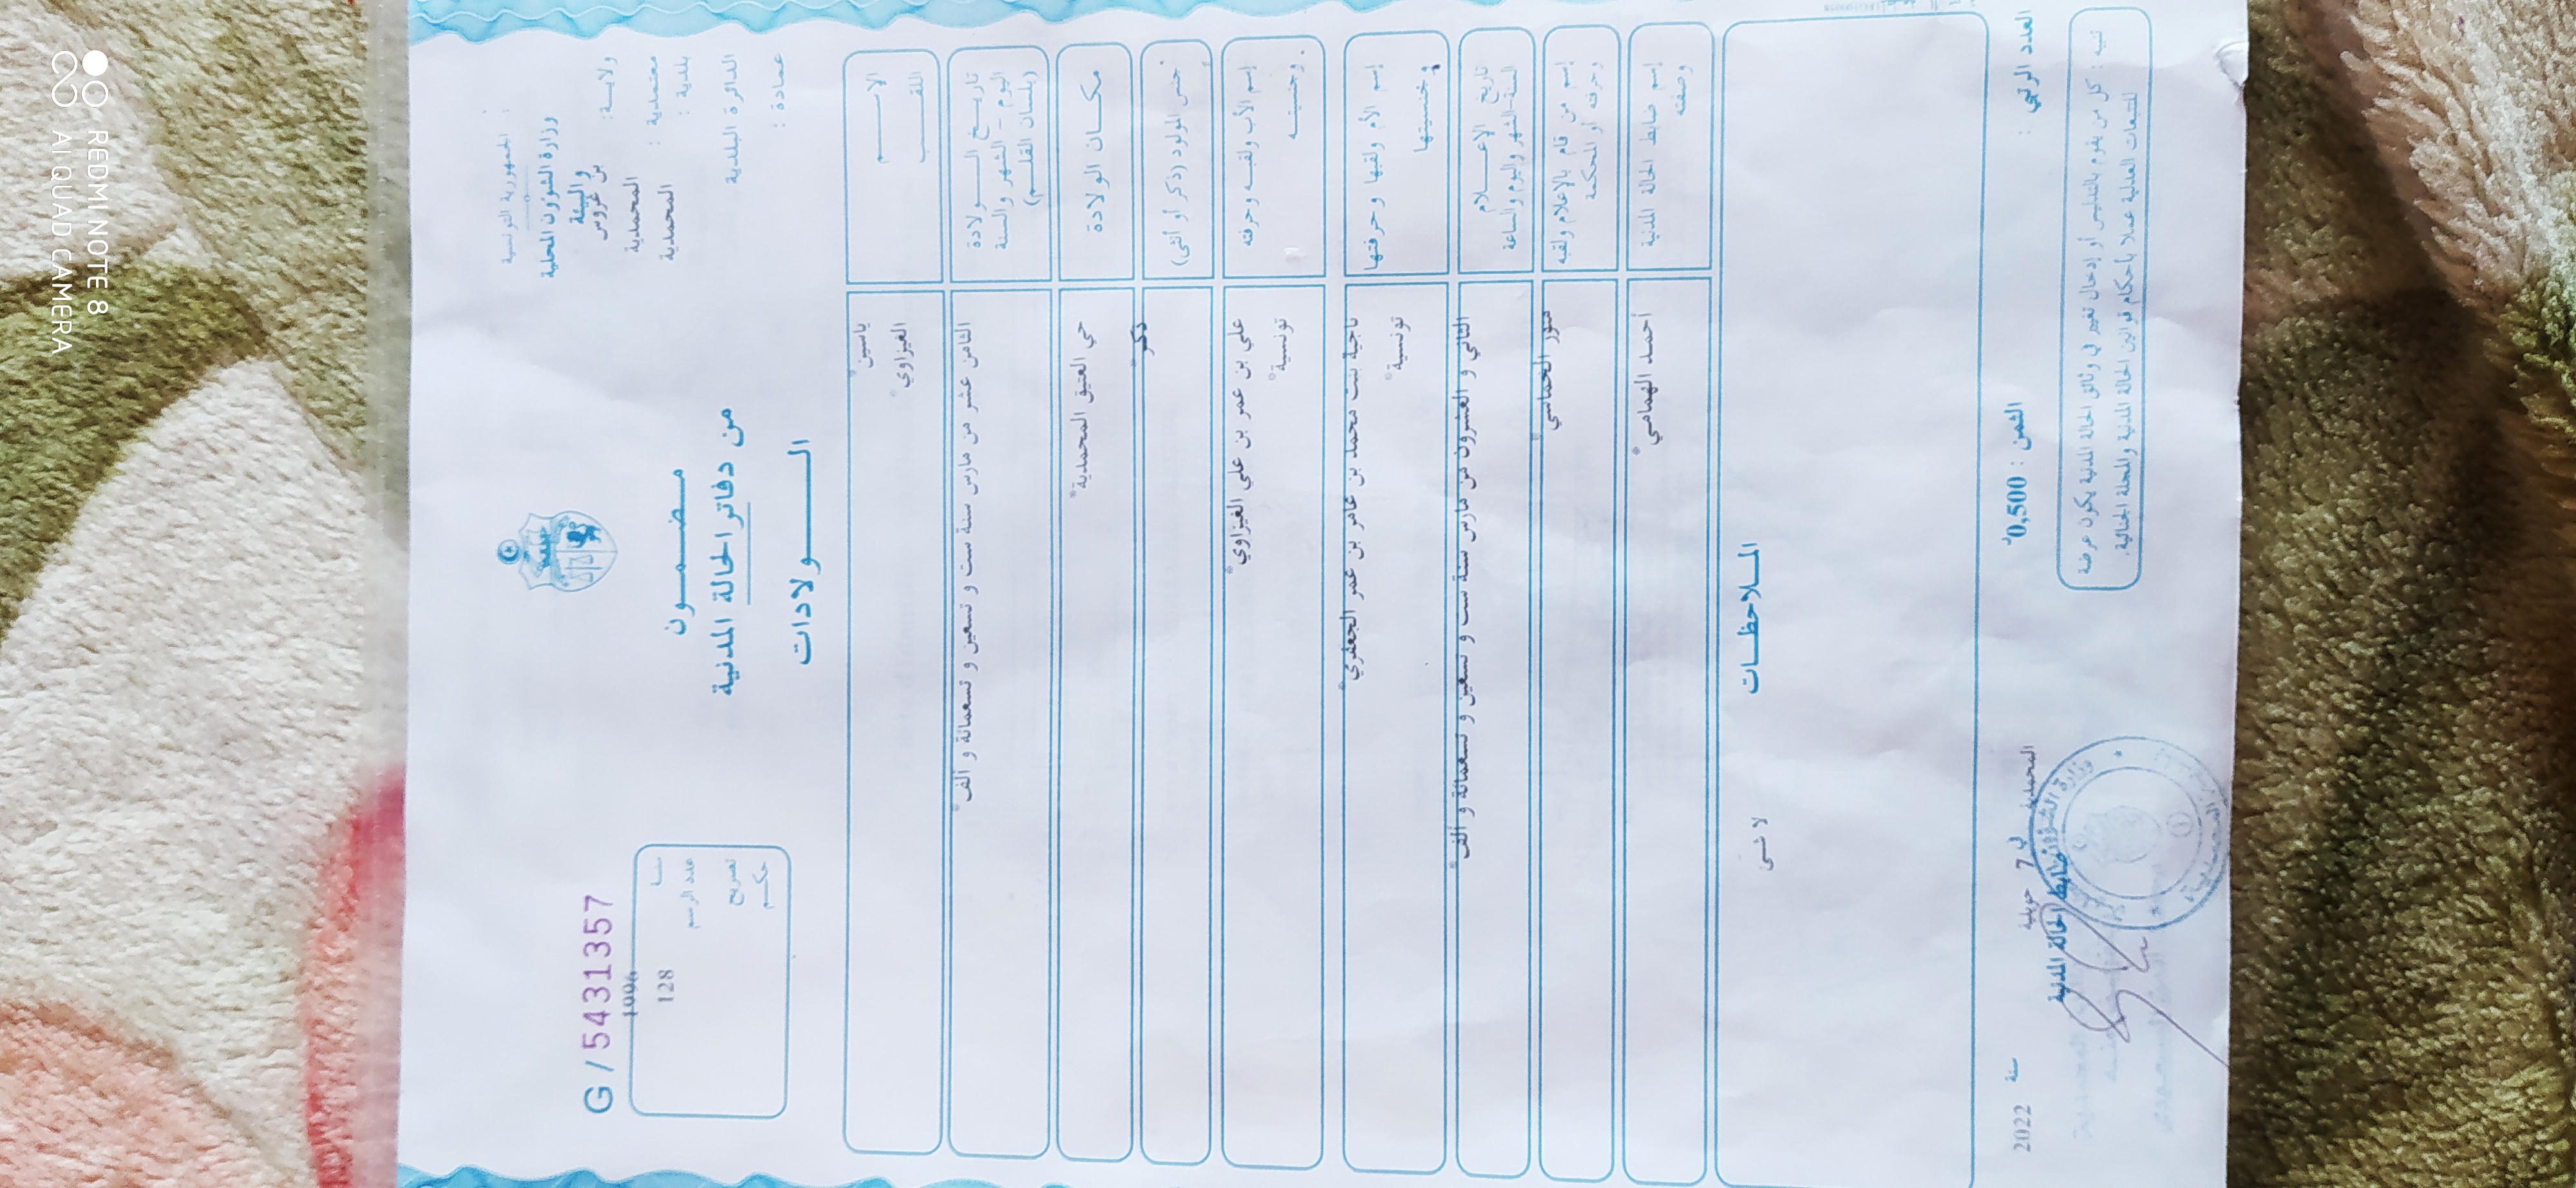 الجمهورية التونسية
وزارة الشؤون المحلية
والبيئة
ولاية: بن عروس
معتمدية : المحمدية
بلدية : المحمدية
الدائرة البلدية
عمادة :
G / 5431357
سنة 1996
عدد الرسم 128
تصريح
حكم
مضمون
من دفاتر الحالة المدنية
الولادات
الإسم ياسين
اللقب الغيزاوي
تاريخ الولادة
اليوم - الشهر والسنة
(بلسان القلم)
الثامن عشر من مارس سنة ست و تسعين و تسعمائة و ألف
مكان الولادة حي العتيق المحمدية
جنس المولود (ذكر أو أنثى) ذكر
إسم الأب ولقبه وحرفته علي بن عمر بن علي الغيزاوي
وجنسيته تونسية
إسم الأم ولقبها وحرفتها ناجية بنت محمد بن عامر بن عمر الجعفري
وجنسيتها تونسية
تاريخ الإعلام
السنة-الشهر واليوم والساعة
الثاني و العشرون من مارس سنة ست و تسعين و تسعمائة و ألف
إسم من قام بالإعلام ولقبه
وحرفته أو المحكمة
منور الخماسي
إسم ضابط الحالة المدنية أحمد الهمامي
وصفته
الملاحظات
لا شئ
العدد الرتبي :
الثمن : 0,500د
المحمدية في 7 جويلية سنة 2022
ضابط الحالة المدنية
تنبيه : كل من يقوم بالتدليس أو إدخال تغيير في وثائق الحالة المدنية يكون عرضة
للتتبعات العدلية عملا بأحكام قوانين الحالة المدنية والمجلة الجنائية.
REDMI NOTE 8
AI QUAD CAMERA